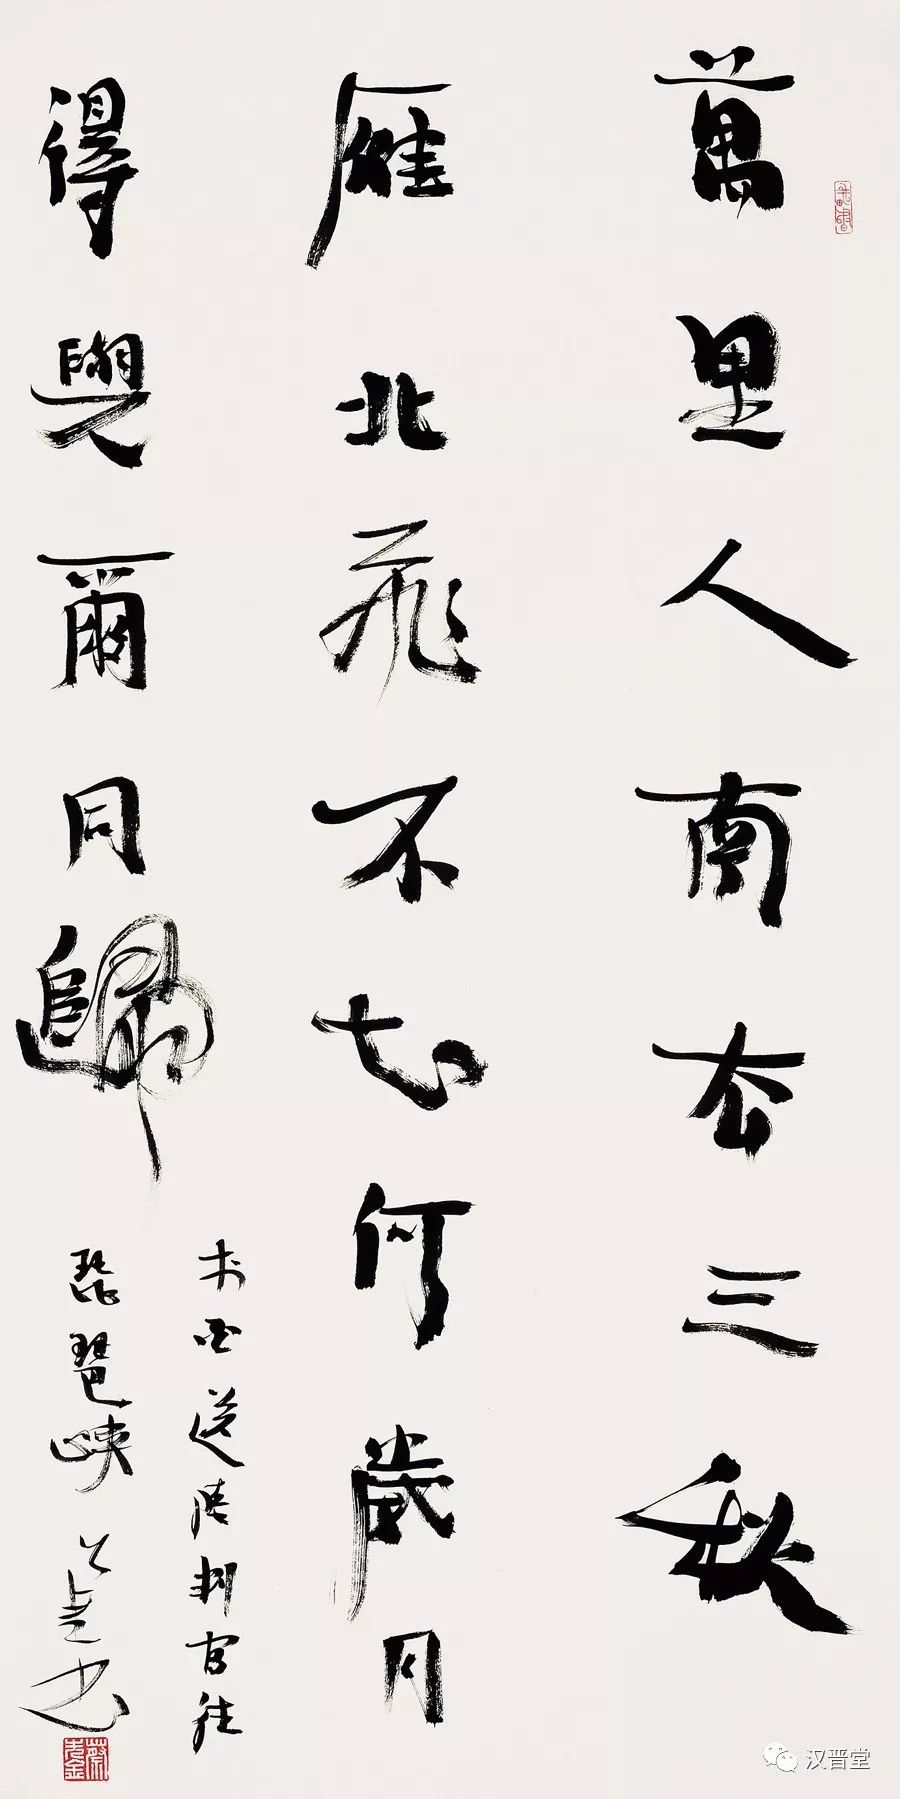 萬里人南去三秋
雁北飛不知何歲月
得與爾同歸
书白送陸判官往
琵琶峡
汉晋堂